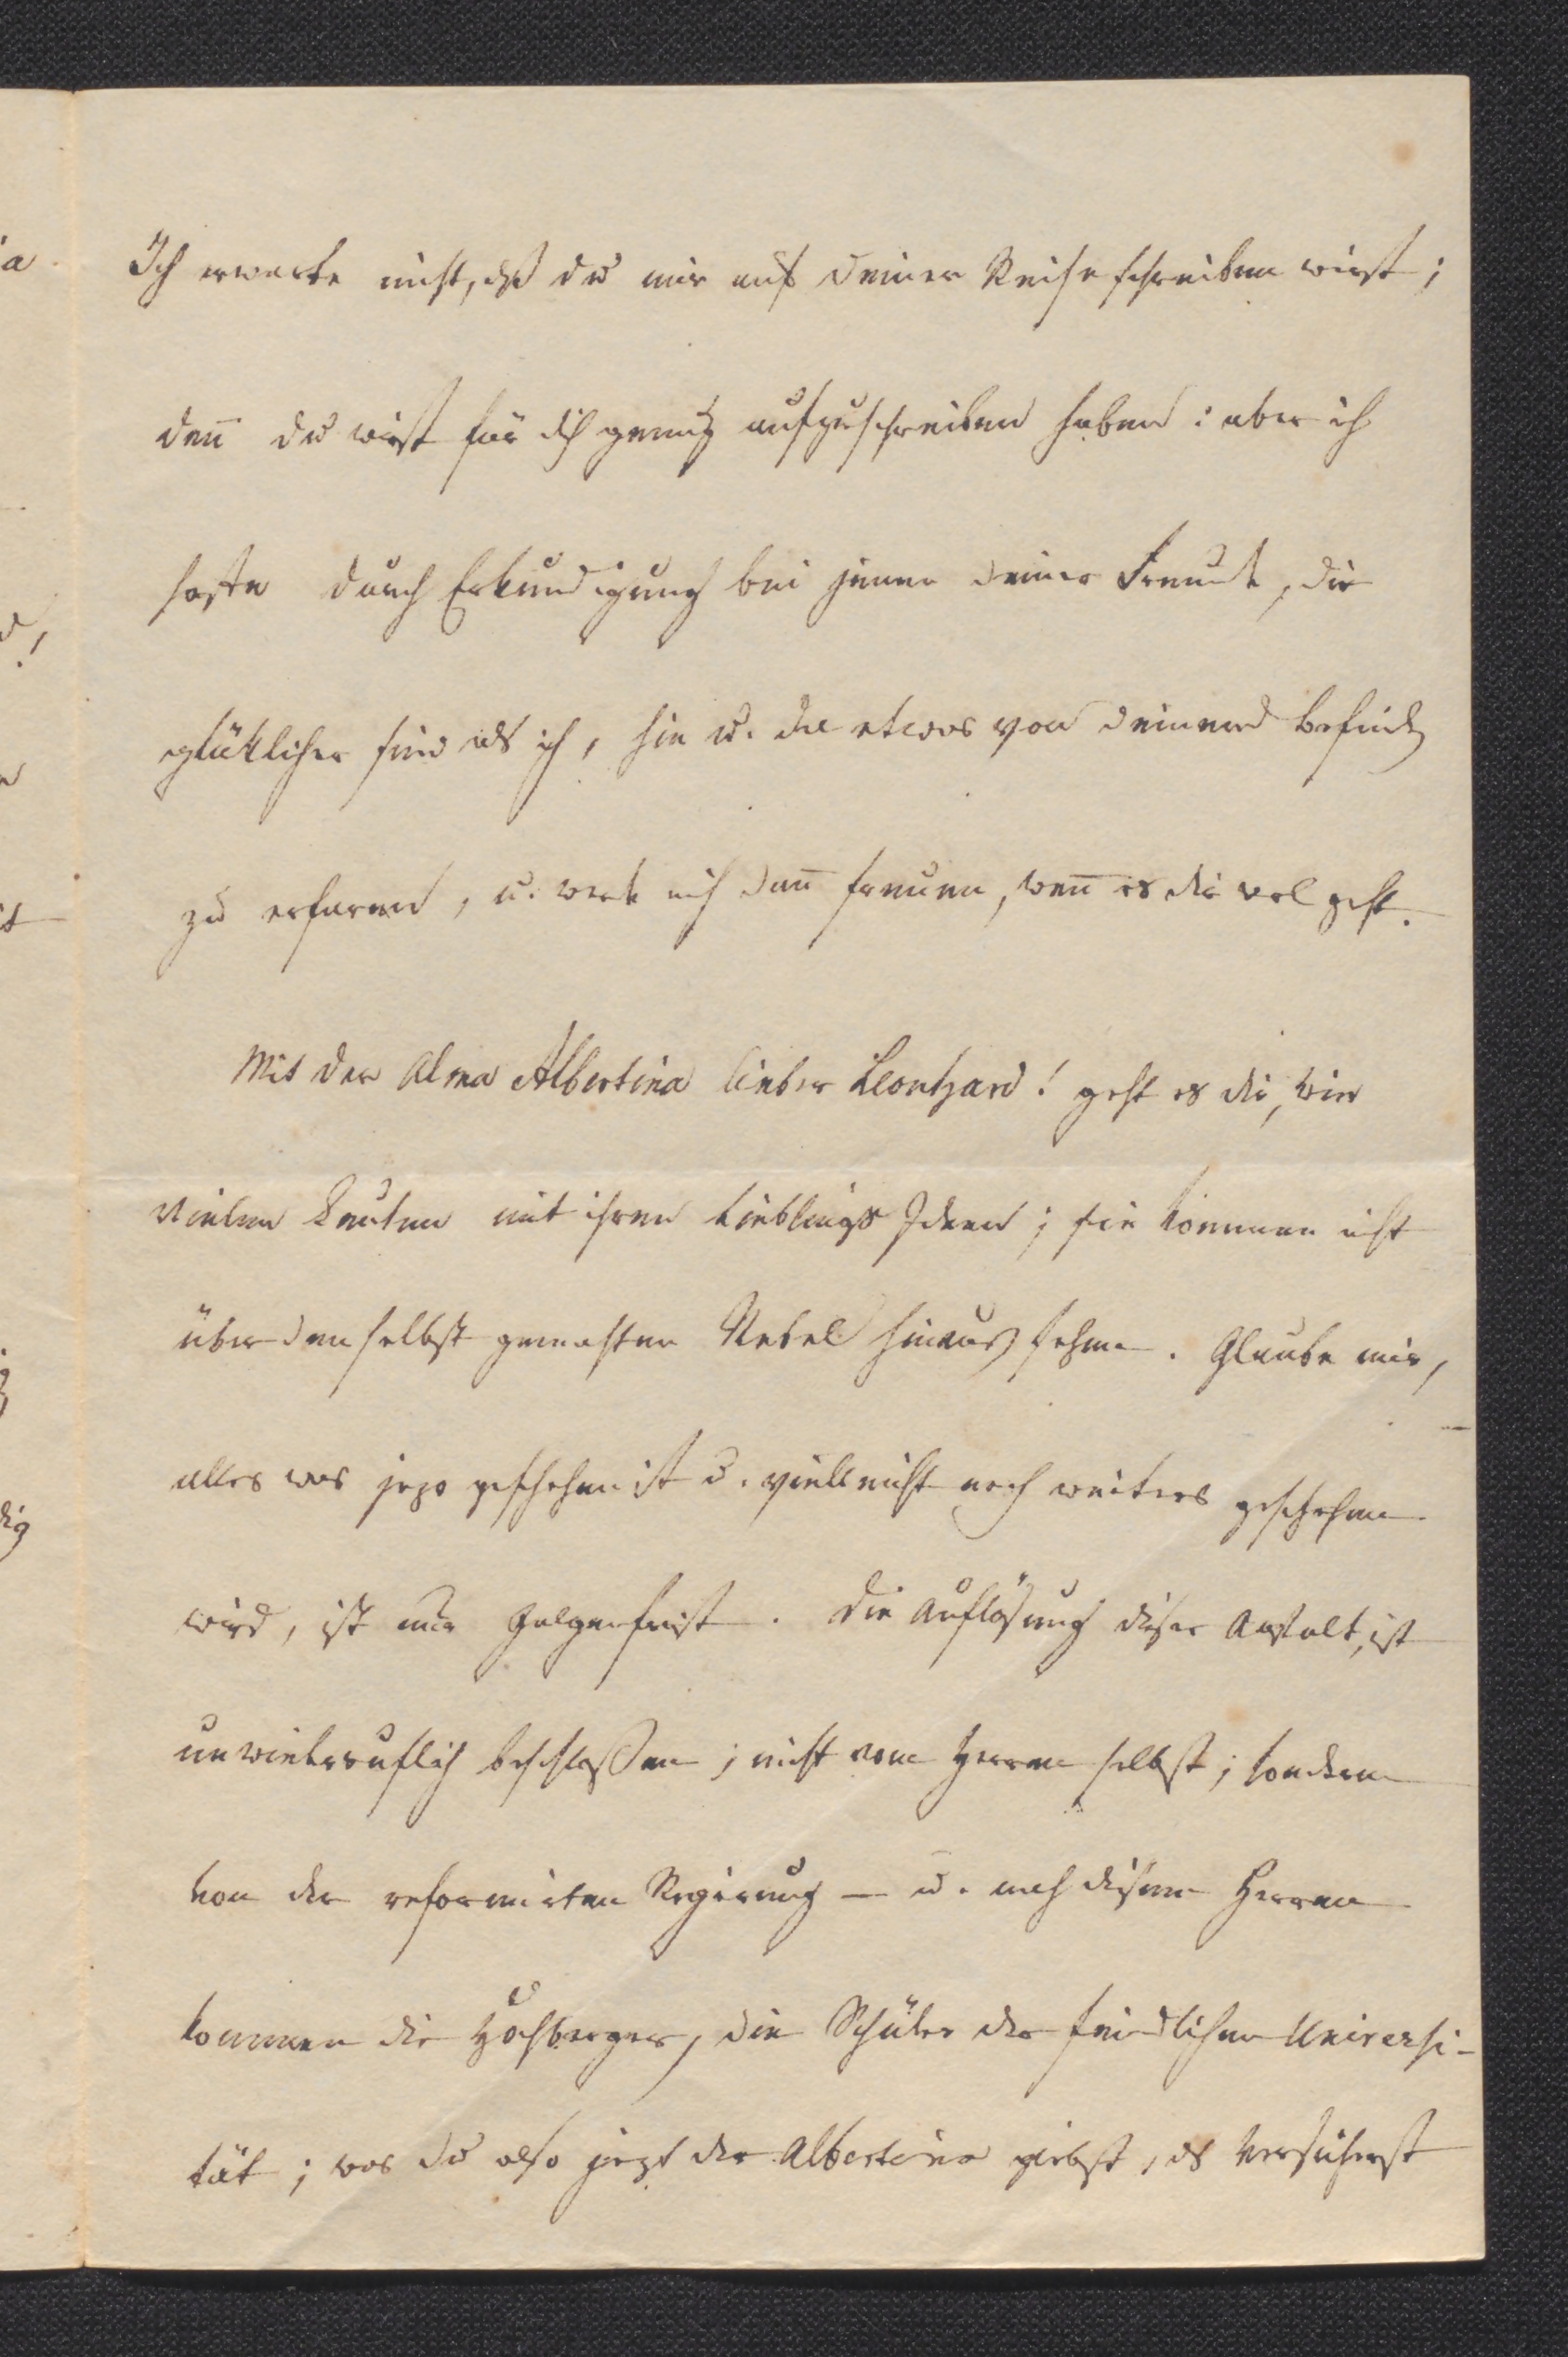 Ich erwarte nicht, dß du mir auf deiner Reise schreiben wirst;
deñ du wirst für dich genug aufzuschreiben haben: aber ich
hoffe durch Erkundigung bei jenen deiner Freunde, die
glüklicher sind als ich, hie u. da etwas von deinem Befinden
zu erfaren, u. werde mich dañ freuen, weñ es dir wol geht.
Mit der Alma Albertina lieber Leonhard! geht es dir, wie
vielen Leuten mit ihren Lieblings Ideen; sie können nicht
über den selbst gemachten Nebel hinaus sehen. Glaube mir,
alles was jezo geschehen ist u. vielleicht noch weiters geschehen
wird, ist nur Galgenfrist. Die Auflösung diser Anstalt, ist
unwiderruflich beschloßen; nicht vom Herren selbst; sondern
von der reformirten Regirung — u. nach disem Herren
kommen die Hochberger, die Schüler der feindlichen Universi-
tät; was du also jezt der Albertina giebst, das versicherst